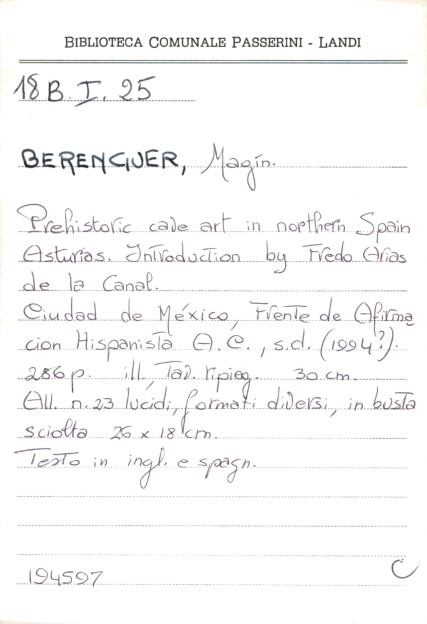 BIBLIOTECA COMUNALE PASSERINI - LANDI
18 B. I. 25
BERENGUER, Magín.
Prehistoric cave art in northern Spain
Asturias. Introduction by Fredo Arias
de la Canal.
Ciudad de México, Frente de Afirma
cion Hispanista A.C., s.d. (1994?).
286 p. ill., Tav. ripieg. 30 cm.
All. n. 23 lucidi, formati diversi, in busta
sciolta 26 x 18 cm.
Testo in ingl. e spagn.
194597 C